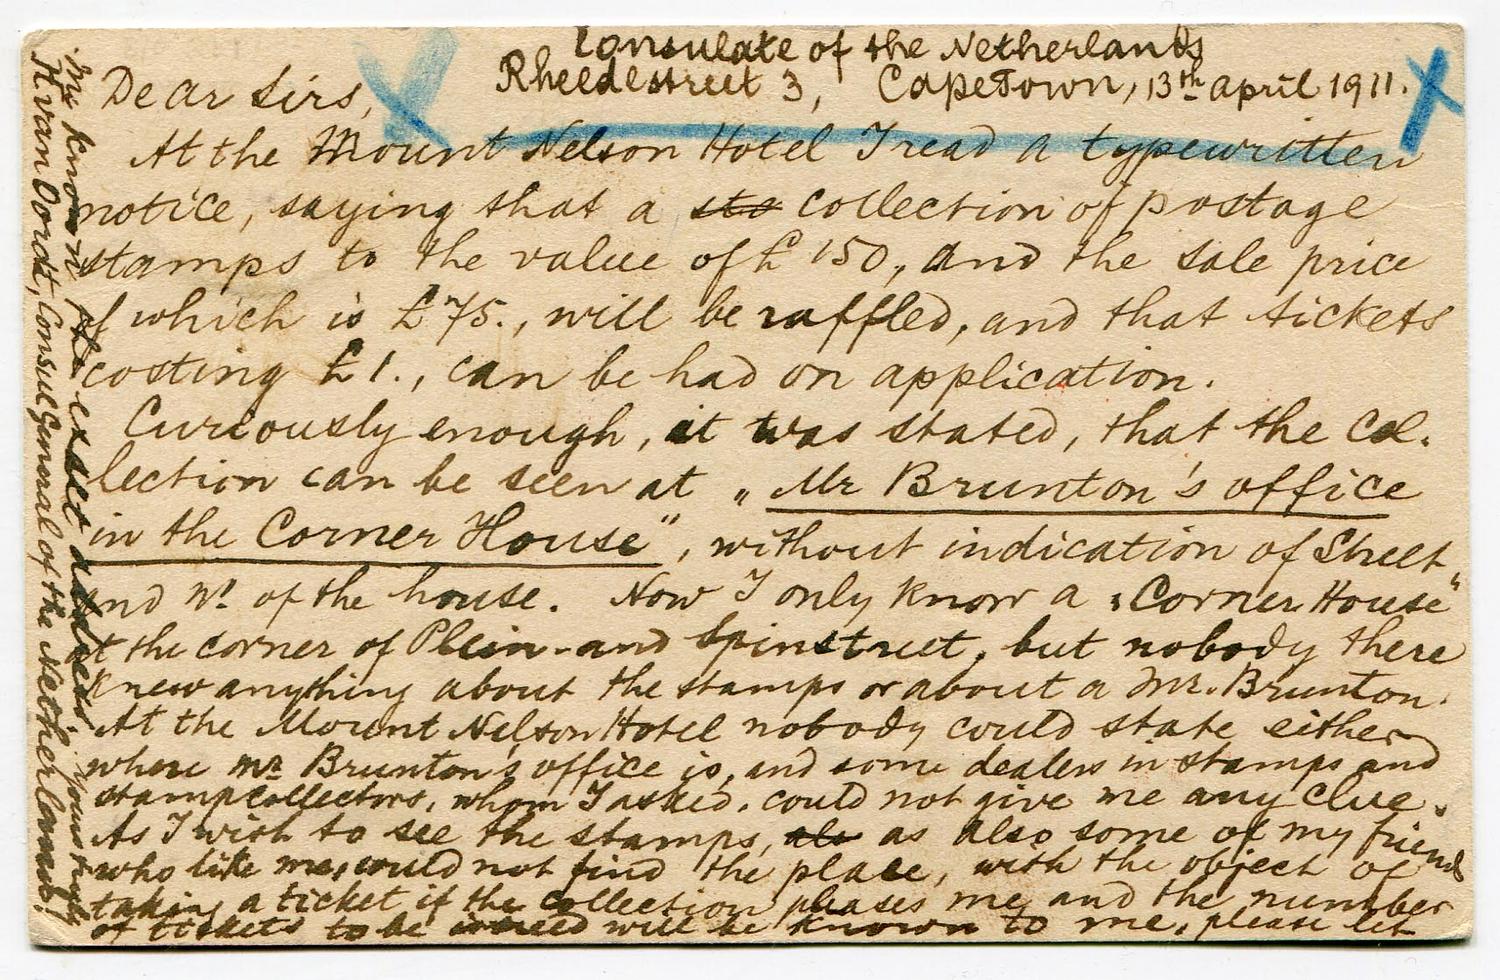 Consulate of the Netherlands
Rheedestreet 3, CapeTown, 13th April 1911.
Dear Sirs,
At the Mount Nelson Hotel I read a typewritten
notice, saying that a sto collection of postage
stamps to the value of £ 150, and the sale price
of which is £ 75., will be raffled, and that tickets
costing £ 1., can be had on application.
Curiously enough, it was stated, that the col.
lection can be seen at „Mr Brunton's office
in the Corner House", without indication of Street
and No of the house. Now I only know a „Corner House"
at the corner of Plein- and Spinstreet, but nobody there
knew anything about the stamps or about a Mr. Brunton.
At the Mount Nelson Hotel nobody could state either
where Mr Brunton's office is, and some dealers in stamps and
stampcollectors, whom I asked, could not give me any clue.
As I wish to see the stamps, als as also some of my friends
who like me, could not find the place, with the object of
taking a ticket if the collection pleases me and the number
of tickets to be issued will be known to me, please let
me know the exact address. Yours truly
H. van Oordt, Consul General of the Netherlands.